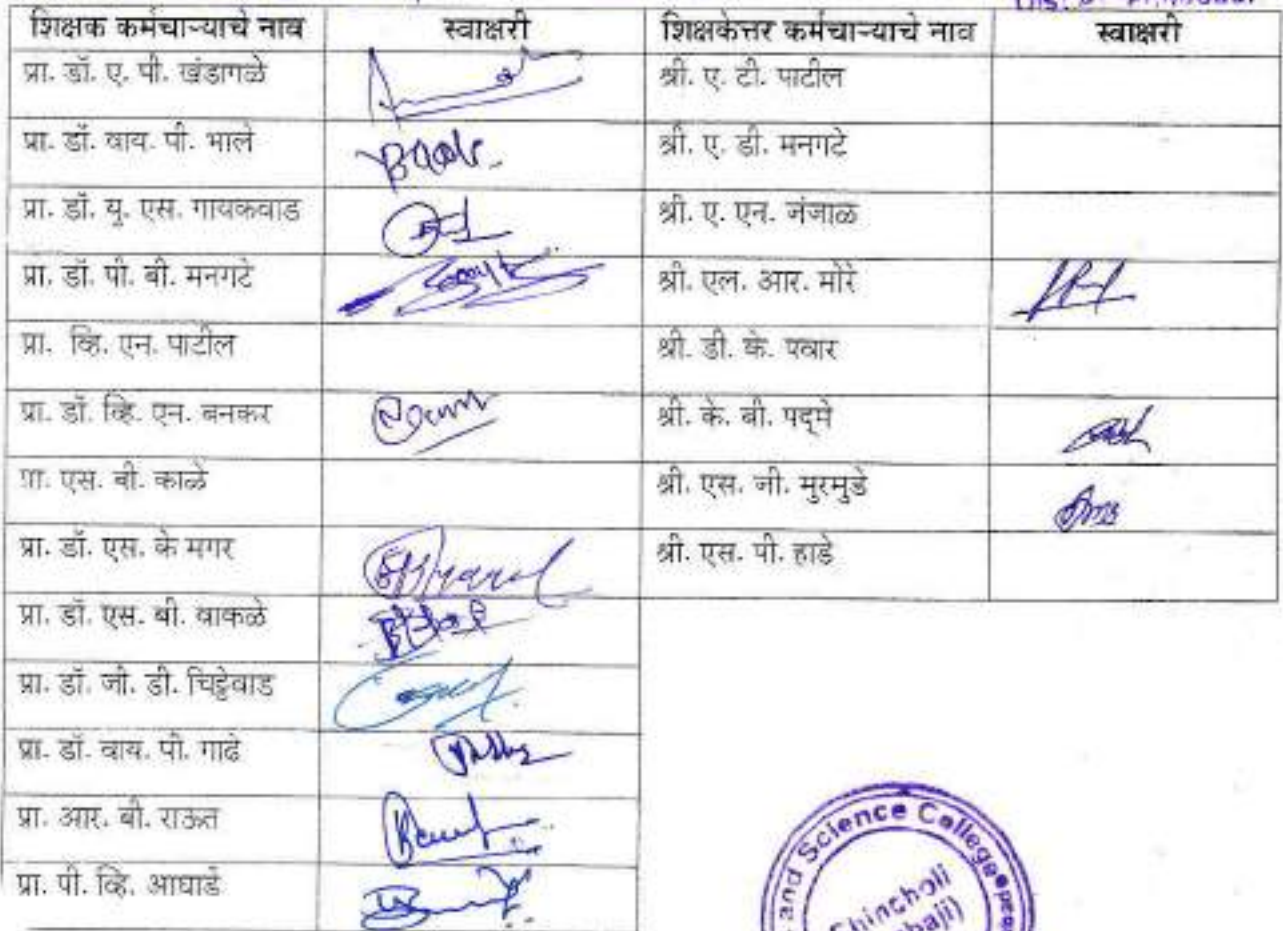 शिक्षक कर्मचाऱ्याचे नाव स्वाक्षरी शिक्षकेत्तर कर्मचाऱ्याचे नाव स्वाक्षरी
प्रा. डॉ. ए. पी. खंडागळे श्री. ए. टी. पाटील
प्रा. डॉ. वाय. पी. भाले श्री. ए. डी. मनगटे
प्रा. डॉ. यु. एस. गायकवाड श्री. ए. एन. जंजाळ
प्रा. डॉ. पी. बी. मनगटे श्री. एल. आर. मोरे
प्रा. व्हि. एन. पाटील श्री. डी. के. पवार
प्रा. डॉ. व्हि. एन. बनकर श्री. के. बी. पद्मे
प्रा. एस. बी. काळे श्री. एस. जी. मुरमुडे
प्रा. डॉ. एस. के मगर श्री. एस. पी. हाडे
प्रा. डॉ. एस. बी. वाकळे
प्रा. डॉ. जी. डी. चिट्टेवाड
प्रा. डॉ. वाय. पी. गाढे
प्रा. आर. बी. राऊत
प्रा. पी. व्हि. आघाडे
and Science College
Chincholi